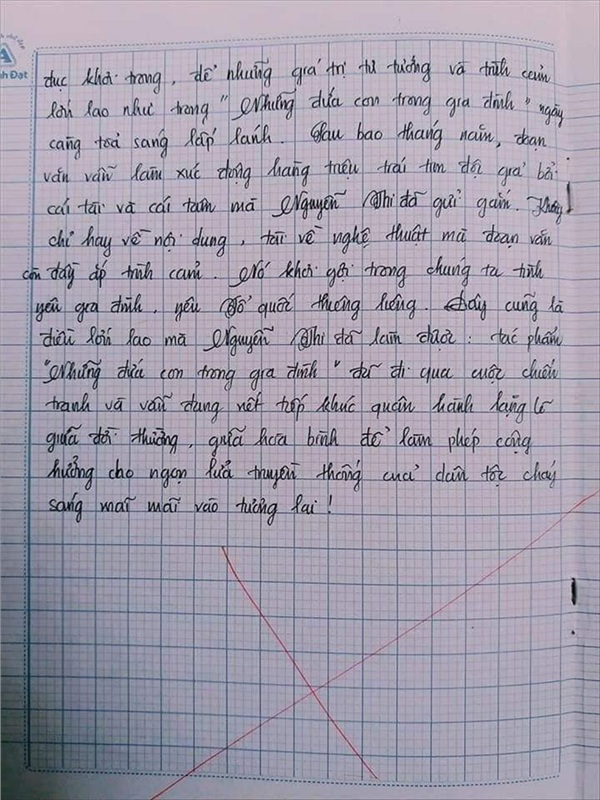 nh Đạt
đục khơi trong, để những giá trị tư tưởng và tình cảm
lớn lao như trong "Những đứa con trong gia đình" ngày
càng toả sáng lấp lánh. Sau bao tháng năm, đoạn
văn vẫn làm xúc động hàng triệu trái tim độc giả bởi
cái tài và cái tâm mà Nguyễn Thi đã gửi gắm. Không
chỉ hay về nội dung, tài về nghệ thuật mà đoạn văn
còn đầy ắp tình cảm. Nó khơi gợi trong chúng ta tình
yêu gia đình, yêu Tổ quốc thương lương. Đây cũng là
điều lớn lao mà Nguyễn Thi đã làm được: tác phẩm
"Những đứa con trong gia đình" đã đi qua cuộc chiến
tranh và vẫn đang viết tiếp khúc quân hành lặng lẽ
giữa đời thường, giữa hoà bình để làm phép cộng
hưởng cho ngọn lửa truyền thống của dân tộc cháy
sáng mãi mãi vào tương lai!